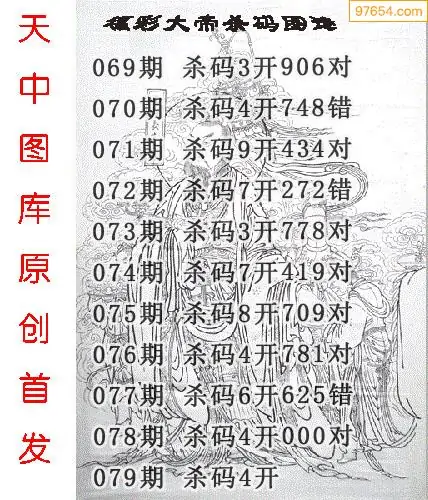 97654.com
福彩大帝杀码图谜
069期 杀码3开906对
070期 杀码4开748错
071期 杀码9开434对
072期 杀码7开272错
073期 杀码3开778对
074期 杀码7开419对
075期 杀码8开709对
076期 杀码4开781对
077期 杀码6开625错
078期 杀码4开000对
079期 杀码4开
天中图库原创首发